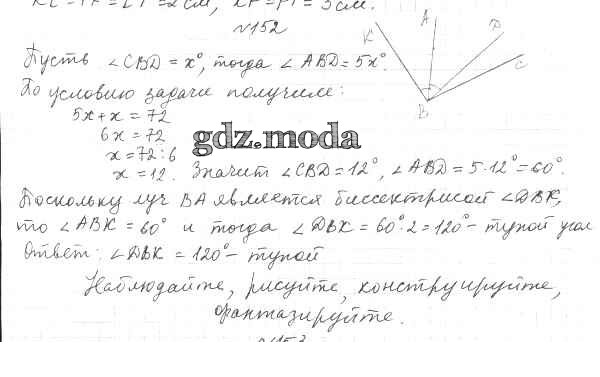 KL = PK = LT = 2 см, KP = PT = 3 см.
№152
K A D C
B
Пусть ∠CBD = x°, тогда ∠ABD = 5x°.
По условию задачи получим:
5x + x = 72
6x = 72
x = 72 : 6
x = 12. Значит ∠CBD = 12°, ∠ABD = 5·12° = 60°.
gdz.moda
Поскольку луч BA является биссектрисой ∠DBK,
то ∠ABK = 60° и тогда ∠DBK = 60°·2 = 120° – тупой угол
Ответ: ∠DBK = 120° – тупой
Наблюдайте, рисуйте, конструируйте,
фантазируйте.
№153